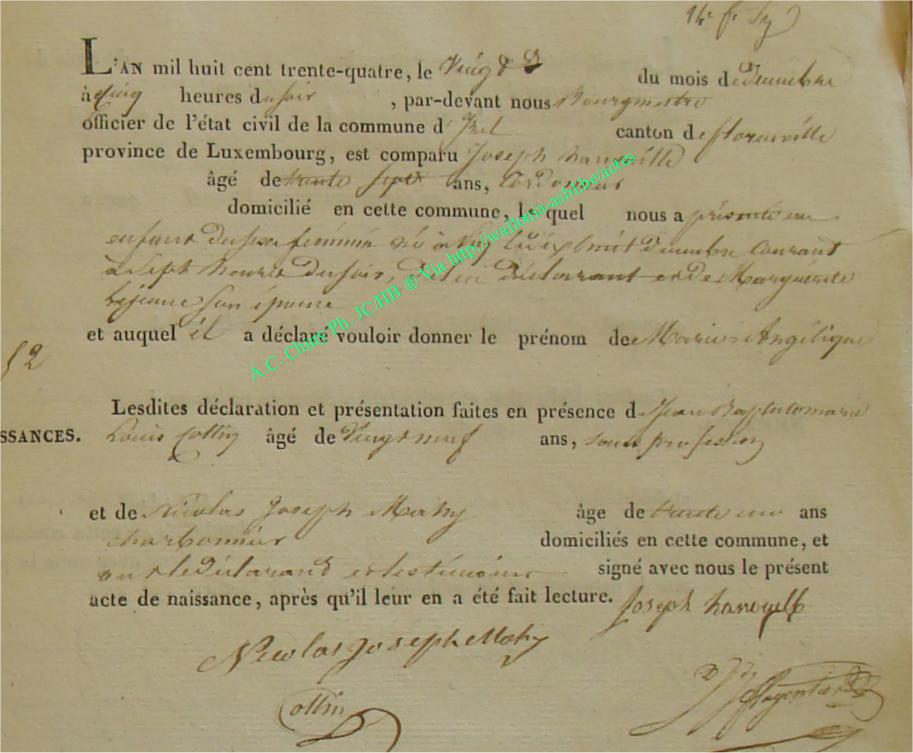 L'AN mil huit cent trente-quatre, le Vingt du mois de décembre
à cinq heures du soir, par-devant nous Bourgmestre
officier de l'état civil de la commune d'Izel canton de florenville
province de Luxembourg, est comparu Joseph hanouille
âgé de trente sept ans, Cordonnier
domicilié en cette commune, lequel nous a présenté un
enfant du sexe féminin né à dix huit décembre Courant
à Sept heures du soir, de lui déclarant et de Marguerite
Lejeune son épouse
et auquel il a déclaré vouloir donner le prénom de Marie Angélique
52
Lesdites déclaration et présentation faites en présence de Jean Baptiste marie
SSANCES. Louis Collin âgé de Vingt neuf ans, sans profession
et de Nicolas Joseph Mathy âge de trente un ans
charbonnier domiciliés en cette commune, et
ont le déclarant et les témoins signé avec nous le présent
acte de naissance, après qu'il leur en a été fait lecture. Joseph hanouille
Nicolas Joseph Mathy
Collin
A.C. Chiny Ph. JC.HB @ Via http://wallonia-asbl.be/actes